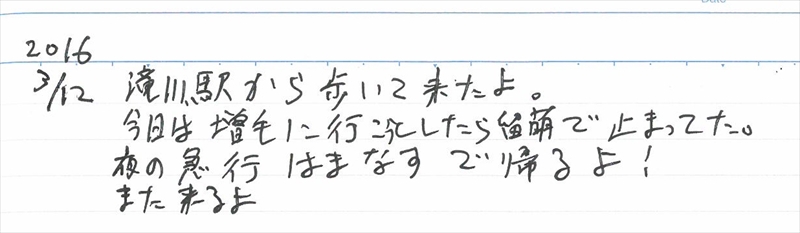 2016
3/12 滝川駅から歩いて来たよ。
今日は増毛に行こうとしたら留萌で止まってた。
夜の急行はまなすで帰るよ!
また来るよ